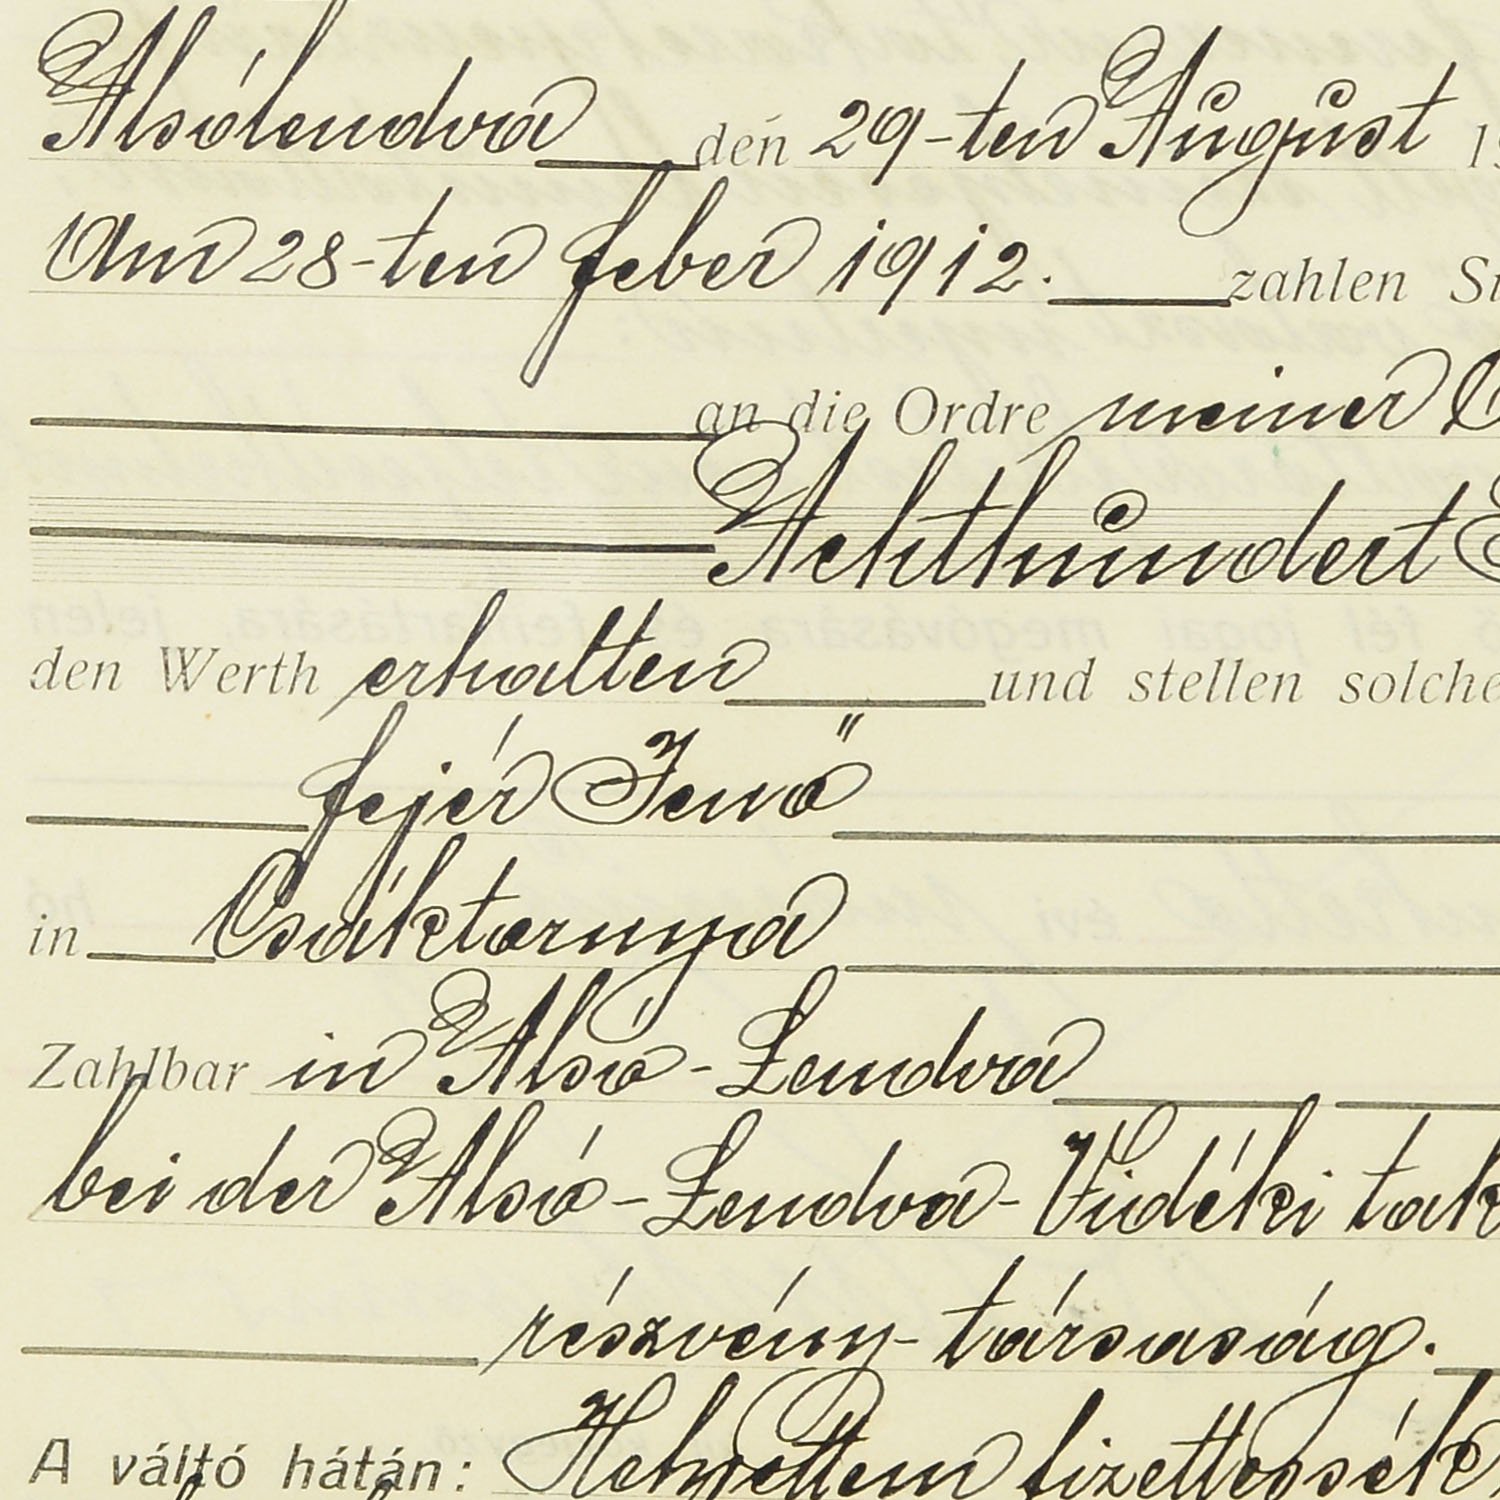 Alsólendva den 29-ten August 19
Am 28-ten feber 1912. zahlen Si
an die Ordre meiner O
Achthundert
den Werth erhalten und stellen solche
fejér Jenő
in Csáktornya
Zahlbar in Alsó-Lendva
bei der Alsó-Lendva-Vidéki tak
részvény-társaság.
A váltó hátán: Helyettem fizettessék